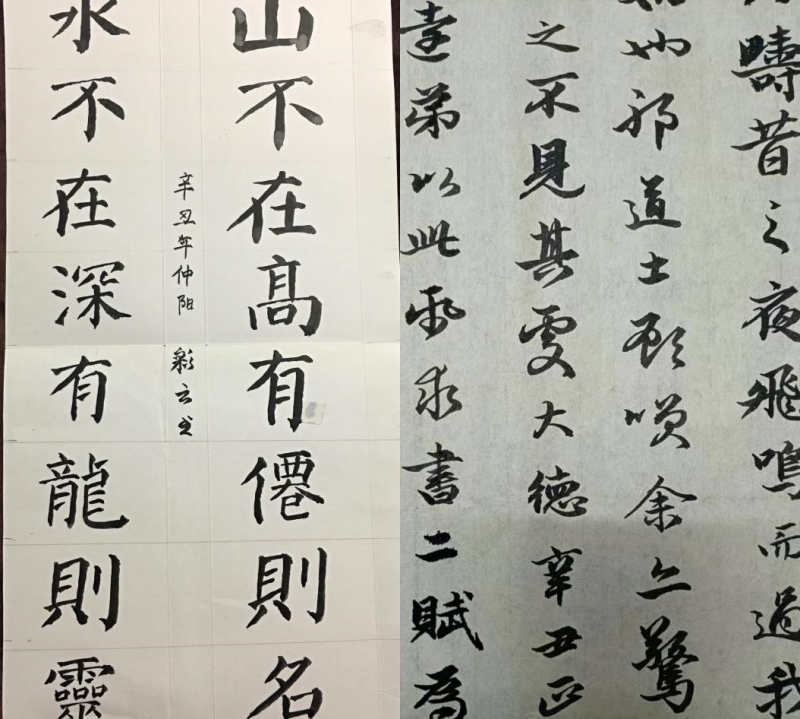 山不在高有僊則名
水不在深有龍則靈
辛丑年仲阳 彩云书
畴昔之夜飛鳴而過我
也邪道士顧唉余亦驚
之不見其處大德辛丑正
達弟以此帋求書二賦為